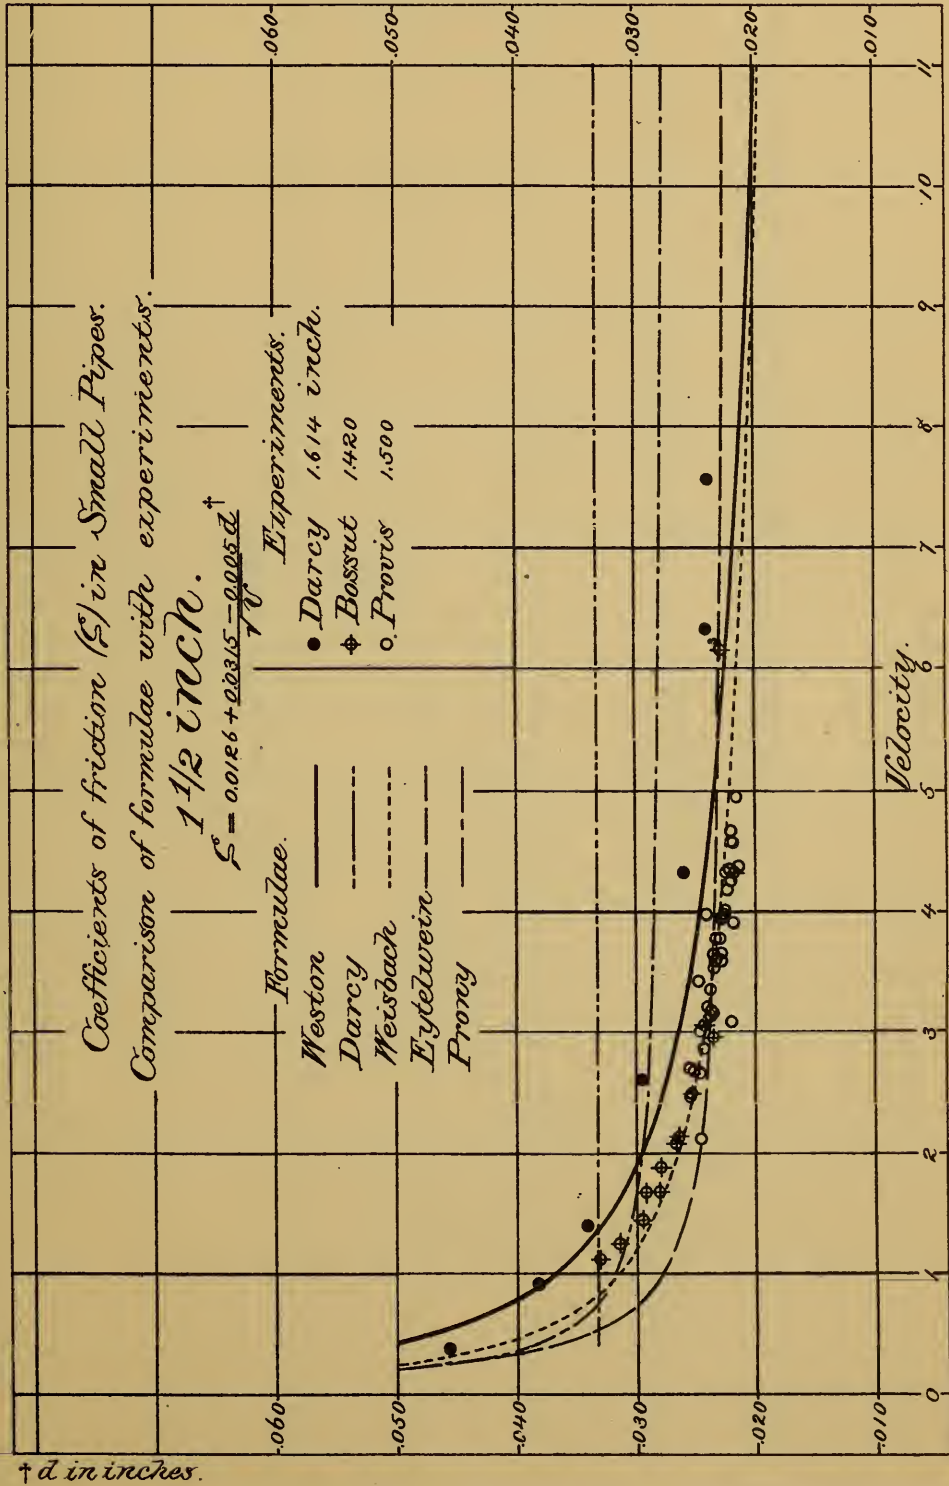 Coefficients of friction (ξ) in Small Pipes.
Comparison of formulae with experiments.
1 1/2 inch.
ξ = 0.0126 + 0.0315 - 0.005 d † / √v
Formulae.
Weston
Darcy
Weisbach
Eytelwein
Prony
Experiments.
Darcy 1.614 inch.
Bossut 1.420
Provis 1.500
.060
.050
.040
.030
.020
.010
.060
.050
.040
.030
.020
.010
3
0
1
2
3
4
5
6
7
8
9
10
11
Velocity.
† d in inches.